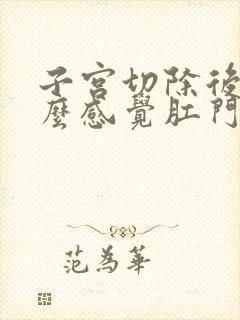 子宮切除後
麼感覺肛門
范為華